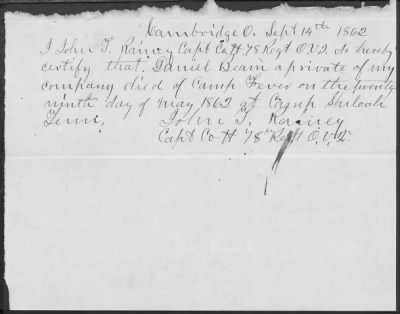 Cambridge O. Sept 14th 1862
I John T. Rainey Capt Co H 78 Regt O.V.I. do hereby
certify that Daniel Beam a private of my
company died of Camp Fever on the twenty
ninth day of may 1862 at Camp Shiloah
Tenn. John T. Rainey
Capt Co H 78" Regt O.V.I.